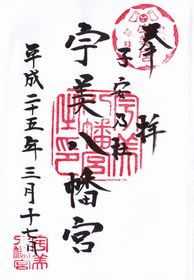 奉拝
子安乃杜
宇美八幡宮
平成二十五年三月十七日
宇美八幡宮